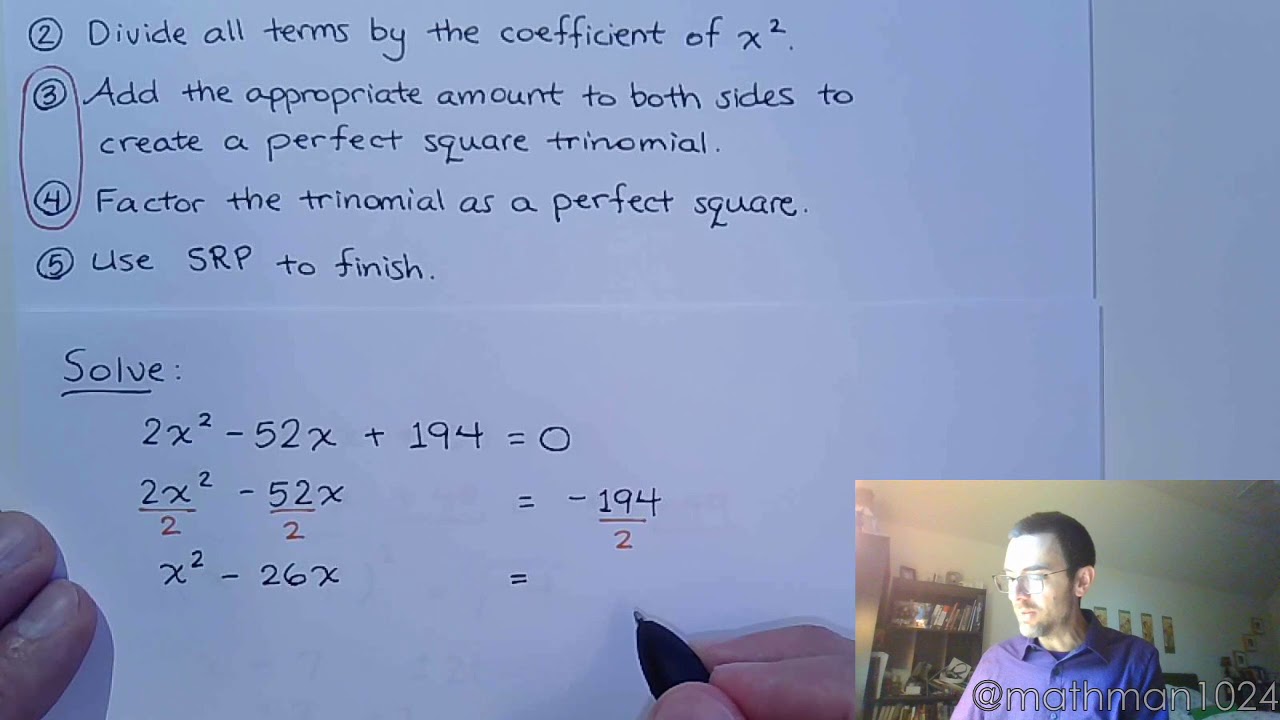 ② Divide all terms by the coefficient of x².
③ Add the appropriate amount to both sides to
create a perfect square trinomial.
④ Factor the trinomial as a perfect square.
⑤ Use SRP to finish.
Solve:
2x² - 52x + 194 = 0
2x²/2 - 52x/2 = - 194/2
x² - 26x =
@mathman1024